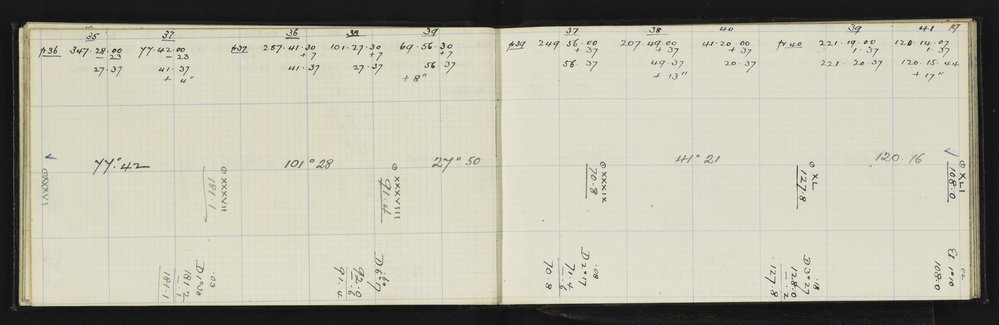 35 37 36 38 39
p36 347.28.00 77.42.00 p37 257.41.30 101.27.30 69.56.30
- 23 - 23 + 7 + 7 + 7
27.37 41.37 41.37 27.37 56.37
+ 4" + 8"
77°.42 101°28 27°50
⊙XXXVI
⊙ XXXVII
181.1
⊙ XXXVIII
91.4
D 1°30 .03
181.2
- .1
181.1
D 6°7
92.0
- .6
91.4
37 38 40 39 41 17
p39 249.56.00 207.49.00 41.20.00 p40 221.19.00 120.14.07
+ 37 + 37 + 37 1.37 1.37
56.37 49.37 20.37 221.20.37 120.15.44
+ 13" + 17"
41°21 120.16
⊙ XXXIX
70.8
⊙ XL
127.8
⊙ XLI
108.0
D 2°17 .08
71.4
- .6
70.8
D 3°27 .18
128.0
- .2
127.8
El 1°10 .02
108.0